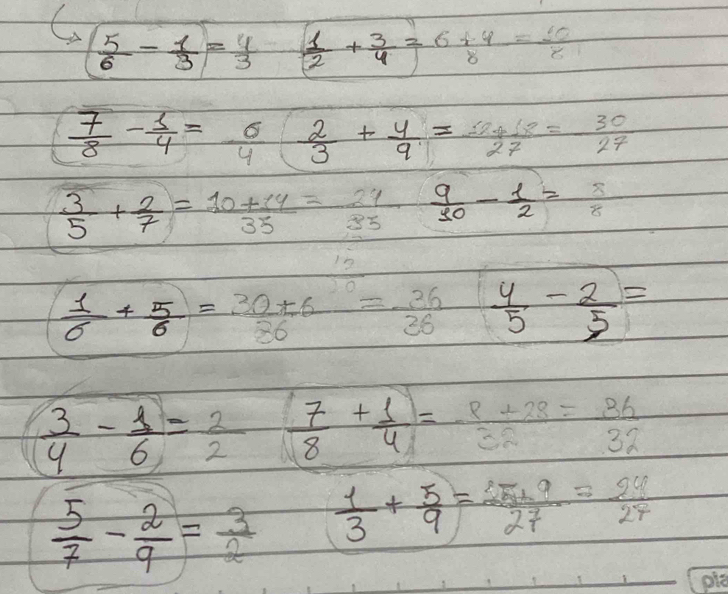 5/6 - 1/3 = 4/3 1/2 + 3/4 = 6+4/8 = 10/8
7/8 - 1/4 = 6/4 2/3 + 4/9 = 12+18/27 = 30/27
3/5 + 2/7 = 10+14/35 = 24/35 9/10 - 1/2 = 8/8
1/6 + 5/6 = 30+6/36 = 36/36 4/5 - 2/5 =
3/4 - 1/6 = 2/2 7/8 + 1/4 = 8+28/32 = 36/32
5/7 - 2/9 = 3/2 1/3 + 5/9 = 15+9/27 = 24/27